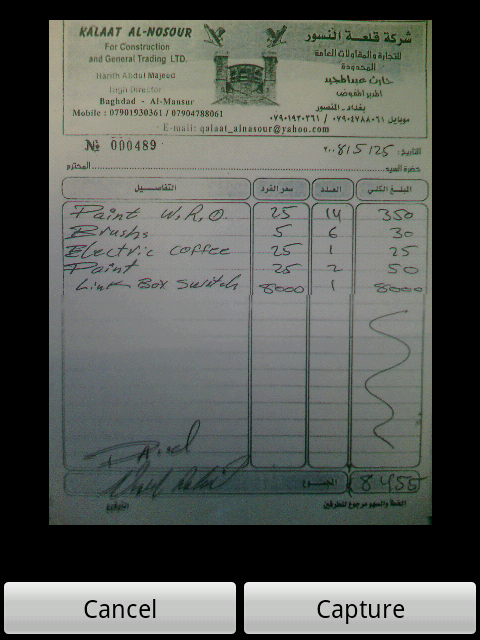 KALAAT AL-NOSOUR
For Construction
and General Trading LTD.
Harith Abdul Majeed
High Director
Baghdad - Al-Mansur
Mobile : 07901930361 / 07904788061
شركة قلعة النسور
للتجارة والمقاولات العامة
المحدودة
حارث عبدالمجيد
المدير المفوض
بغداد - المنصور
موبايل ٠٧٩٠٤٧٨٨٠٦١ / ٠٧٩٠١٩٣٠٣٦١
E-mail: qalaat_alnasour@yahoo.com
№ 000489
التاريخ: 8/5/25 ٢٠٠
حضرة السيد المحترم
التفاصيل سعر الفرد العدد المبلغ الكلي
Paint W.R.O. 25 14 350
Brushs 5 6 30
Electric coffee 25 1 25
Paint 25 2 50
Link Box Switch 8000 1 8000
Paied
المجموع 8455
التوقيع
الخطأ والسهو مرجوع للطرفين
Cancel
Capture